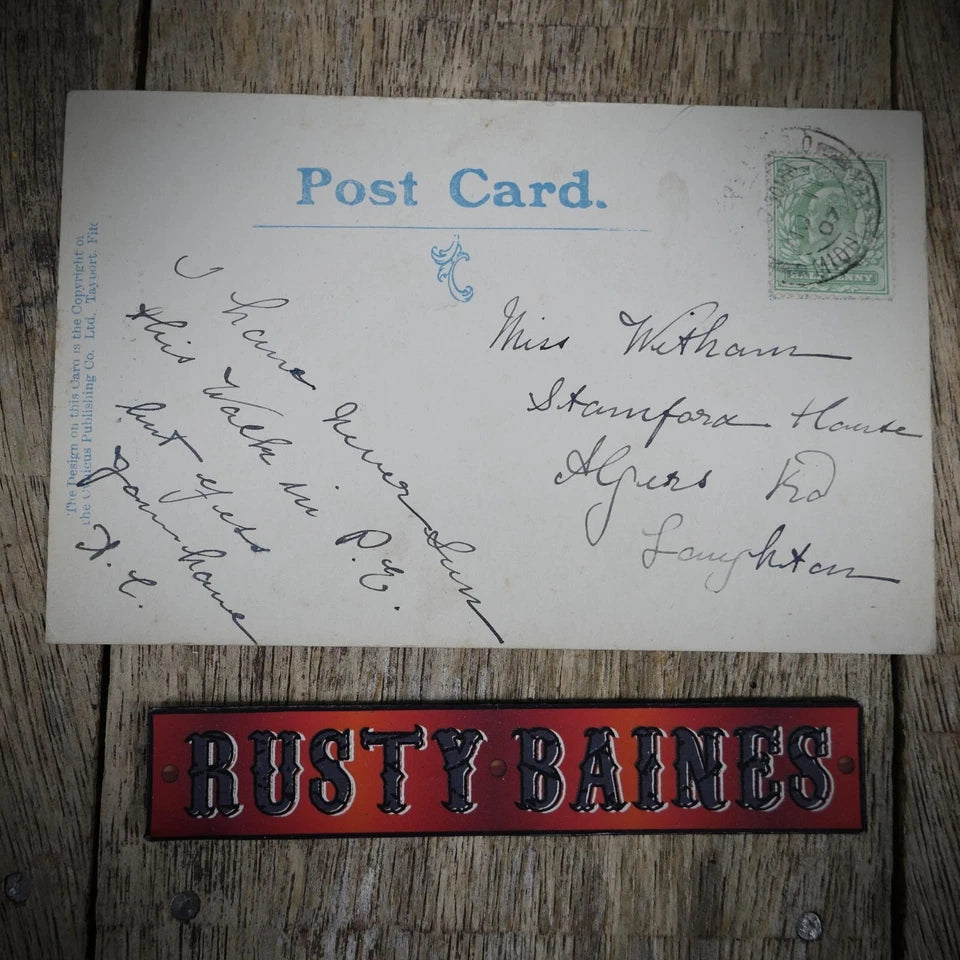 Post Card.
The Design on this Card is the Copyright of
the Publishing Co. Ltd. Tayport. Fife
I have never sun
this Walk in P.E.
but yess
you have
A. C.
Miss Witham
Stamford House
Algers Rd
Loughton
07
MIDD
RUSTY BAINES